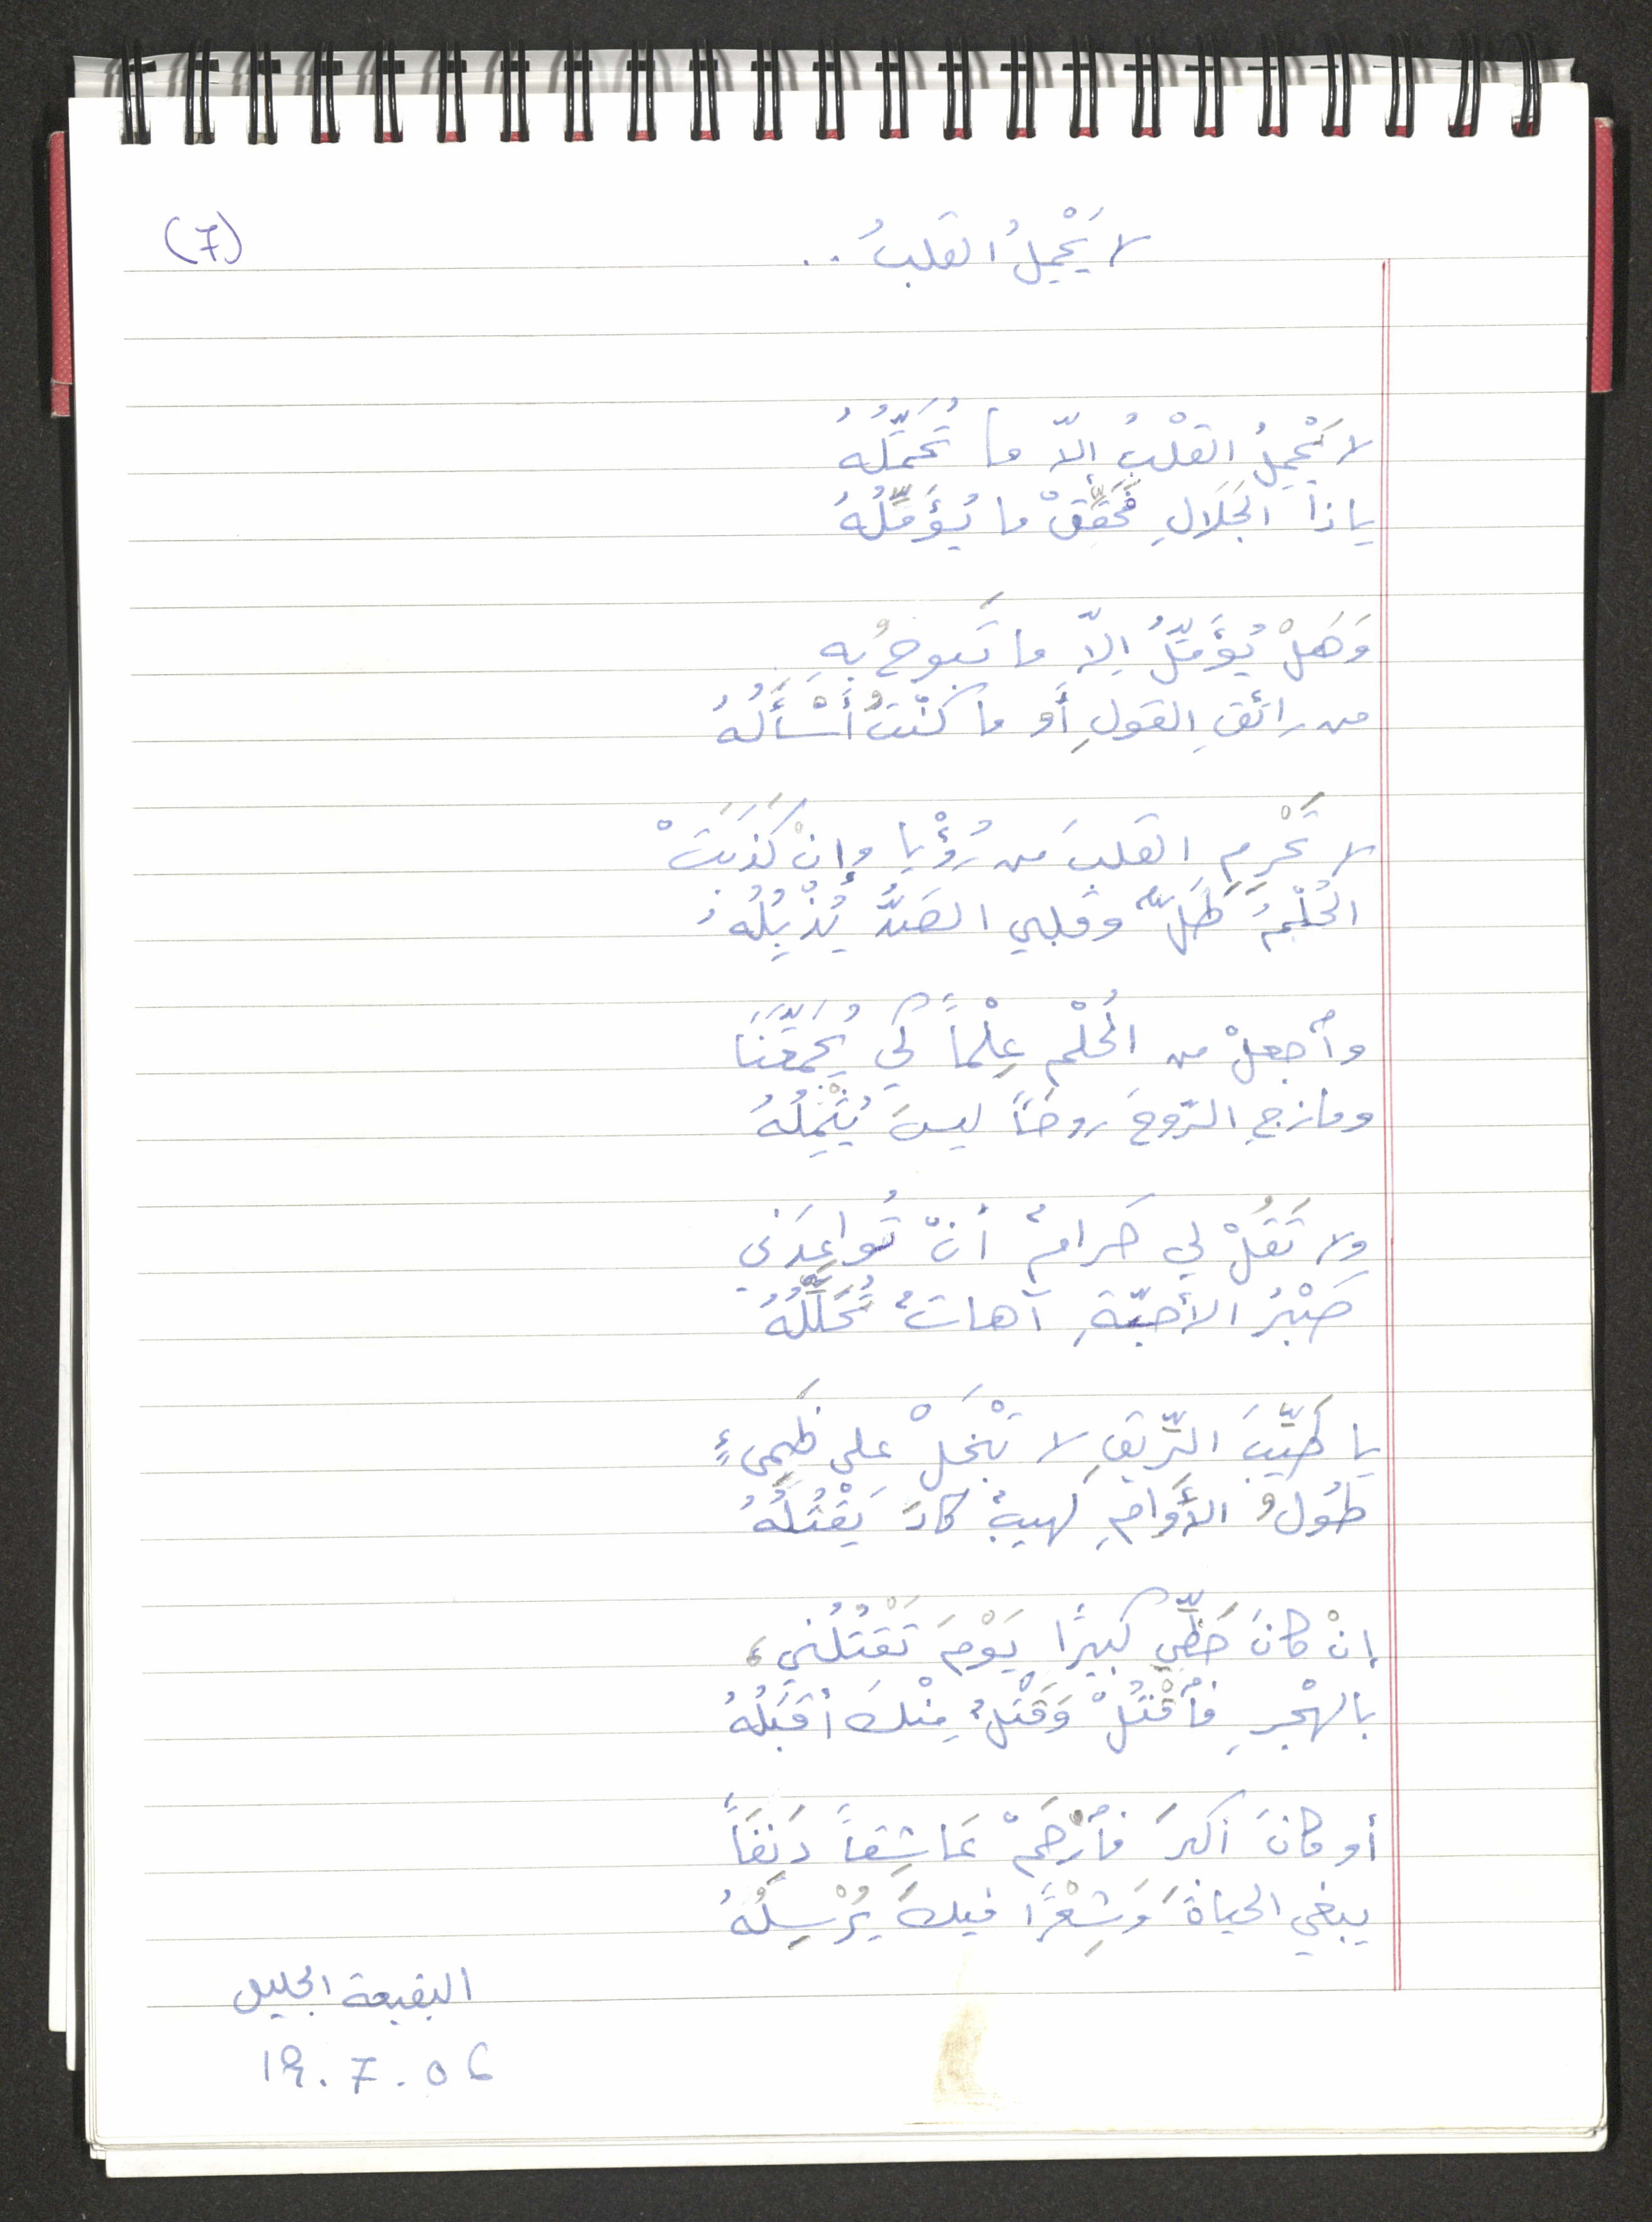 (7)
لا يَحْمِلُ القلبُ ..
لا يَحْمِلُ القلْبُ إلاّ ما تُحَمِّلُهُ
يا ذا الجَلَالِ فَحَقِّقْ ما يُؤَمِّلُهُ
وَهَلْ يُؤَمِّلُ إلاّ ما تَبوحُ بِهِ
من رائقِ القولِ أَو ما كُنْتُ أَسْأَلُهُ
لا تَحْرِمِ القلبَ من رُؤْيا وإنْ كَذَبَتْ
الحُلْمُ طَلٌّ وقلبي الصَدُّ يُذْبِلُهُ
وٱجعلْ من الحُلْمِ عِلْماً كي يُجَمِّعَنَا
ومازجِ الرّوحَ روحَاً ليسَ يُثْمِلُهُ
ولا تَقُلْ لي حَرامٌ أنْ تُواعِدَني
صَبْرُ الأحبّةِ آهاتٌ تُحَلِّلُهُ
يا طَيِّبَ الرِّيقِ لا تَبْخَلْ على ظَمِىءٍ
طُولُ الأُوَامِ لهيبٌ كادَ يَقْتُلُهُ
إنْ كانَ حَظِّي كبيرًا يَوْمَ تَقْتُلُني،
بالهجْرِ فٱقْتُلْ وَقَتْلٌ مِنْكَ أقبَلُهُ
أو كانَ أكبرَ فٱرْحَمْ عَاشِقاً دَنِفَاً
يبغي الحياةَ وَشِعْرًا فيكَ يُرْسِلُهُ
البقيعة الجليل
19.7.06